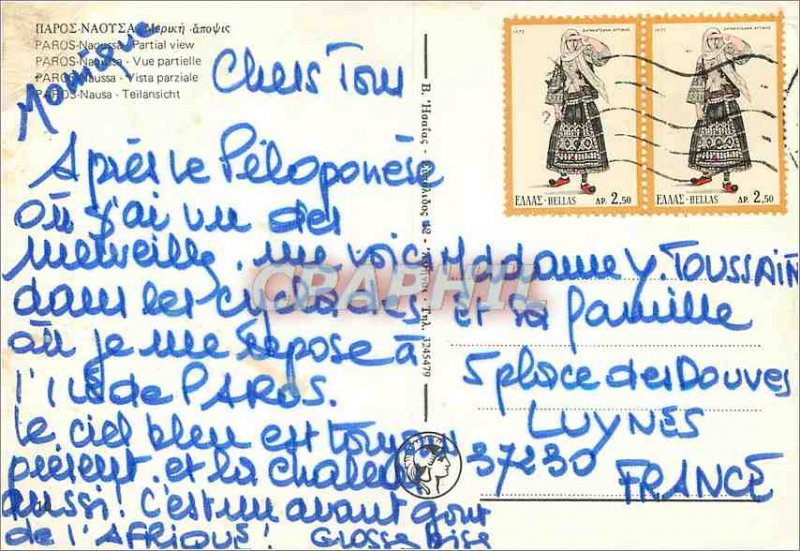 ΠΑΡΟΣ-ΝΑΟΥΣΑ - Μερική άποψις
PAROS-Naoussa - Partial view
PAROS-Naoussa - Vue partielle
PAROS-Naussa - Vista parziale
PAROS-Nausa - Teilansicht
Chers Tous
Après le Péloponèse
où j'ai vu des
merveilles, me voici
dans les cyclades
où je me repose à
l'île de PAROS.
le ciel bleu est toujours
présent et la chaleur
aussi! c'est un avant goût
de l'AFRIQUE! Grosse Bise
Β. Ἠσαΐας - 42 - Τηλ. 3245479
1972
ΕΛΛΑΣ-HELLAS ΔΡ. 2,50
ΕΛΛΑΣ-HELLAS ΔΡ. 2,50
Maddame y. TOUSSAIN
et sa famille
5 place des Douves
LUYNES
37230
FRANCE
CPAPHIL